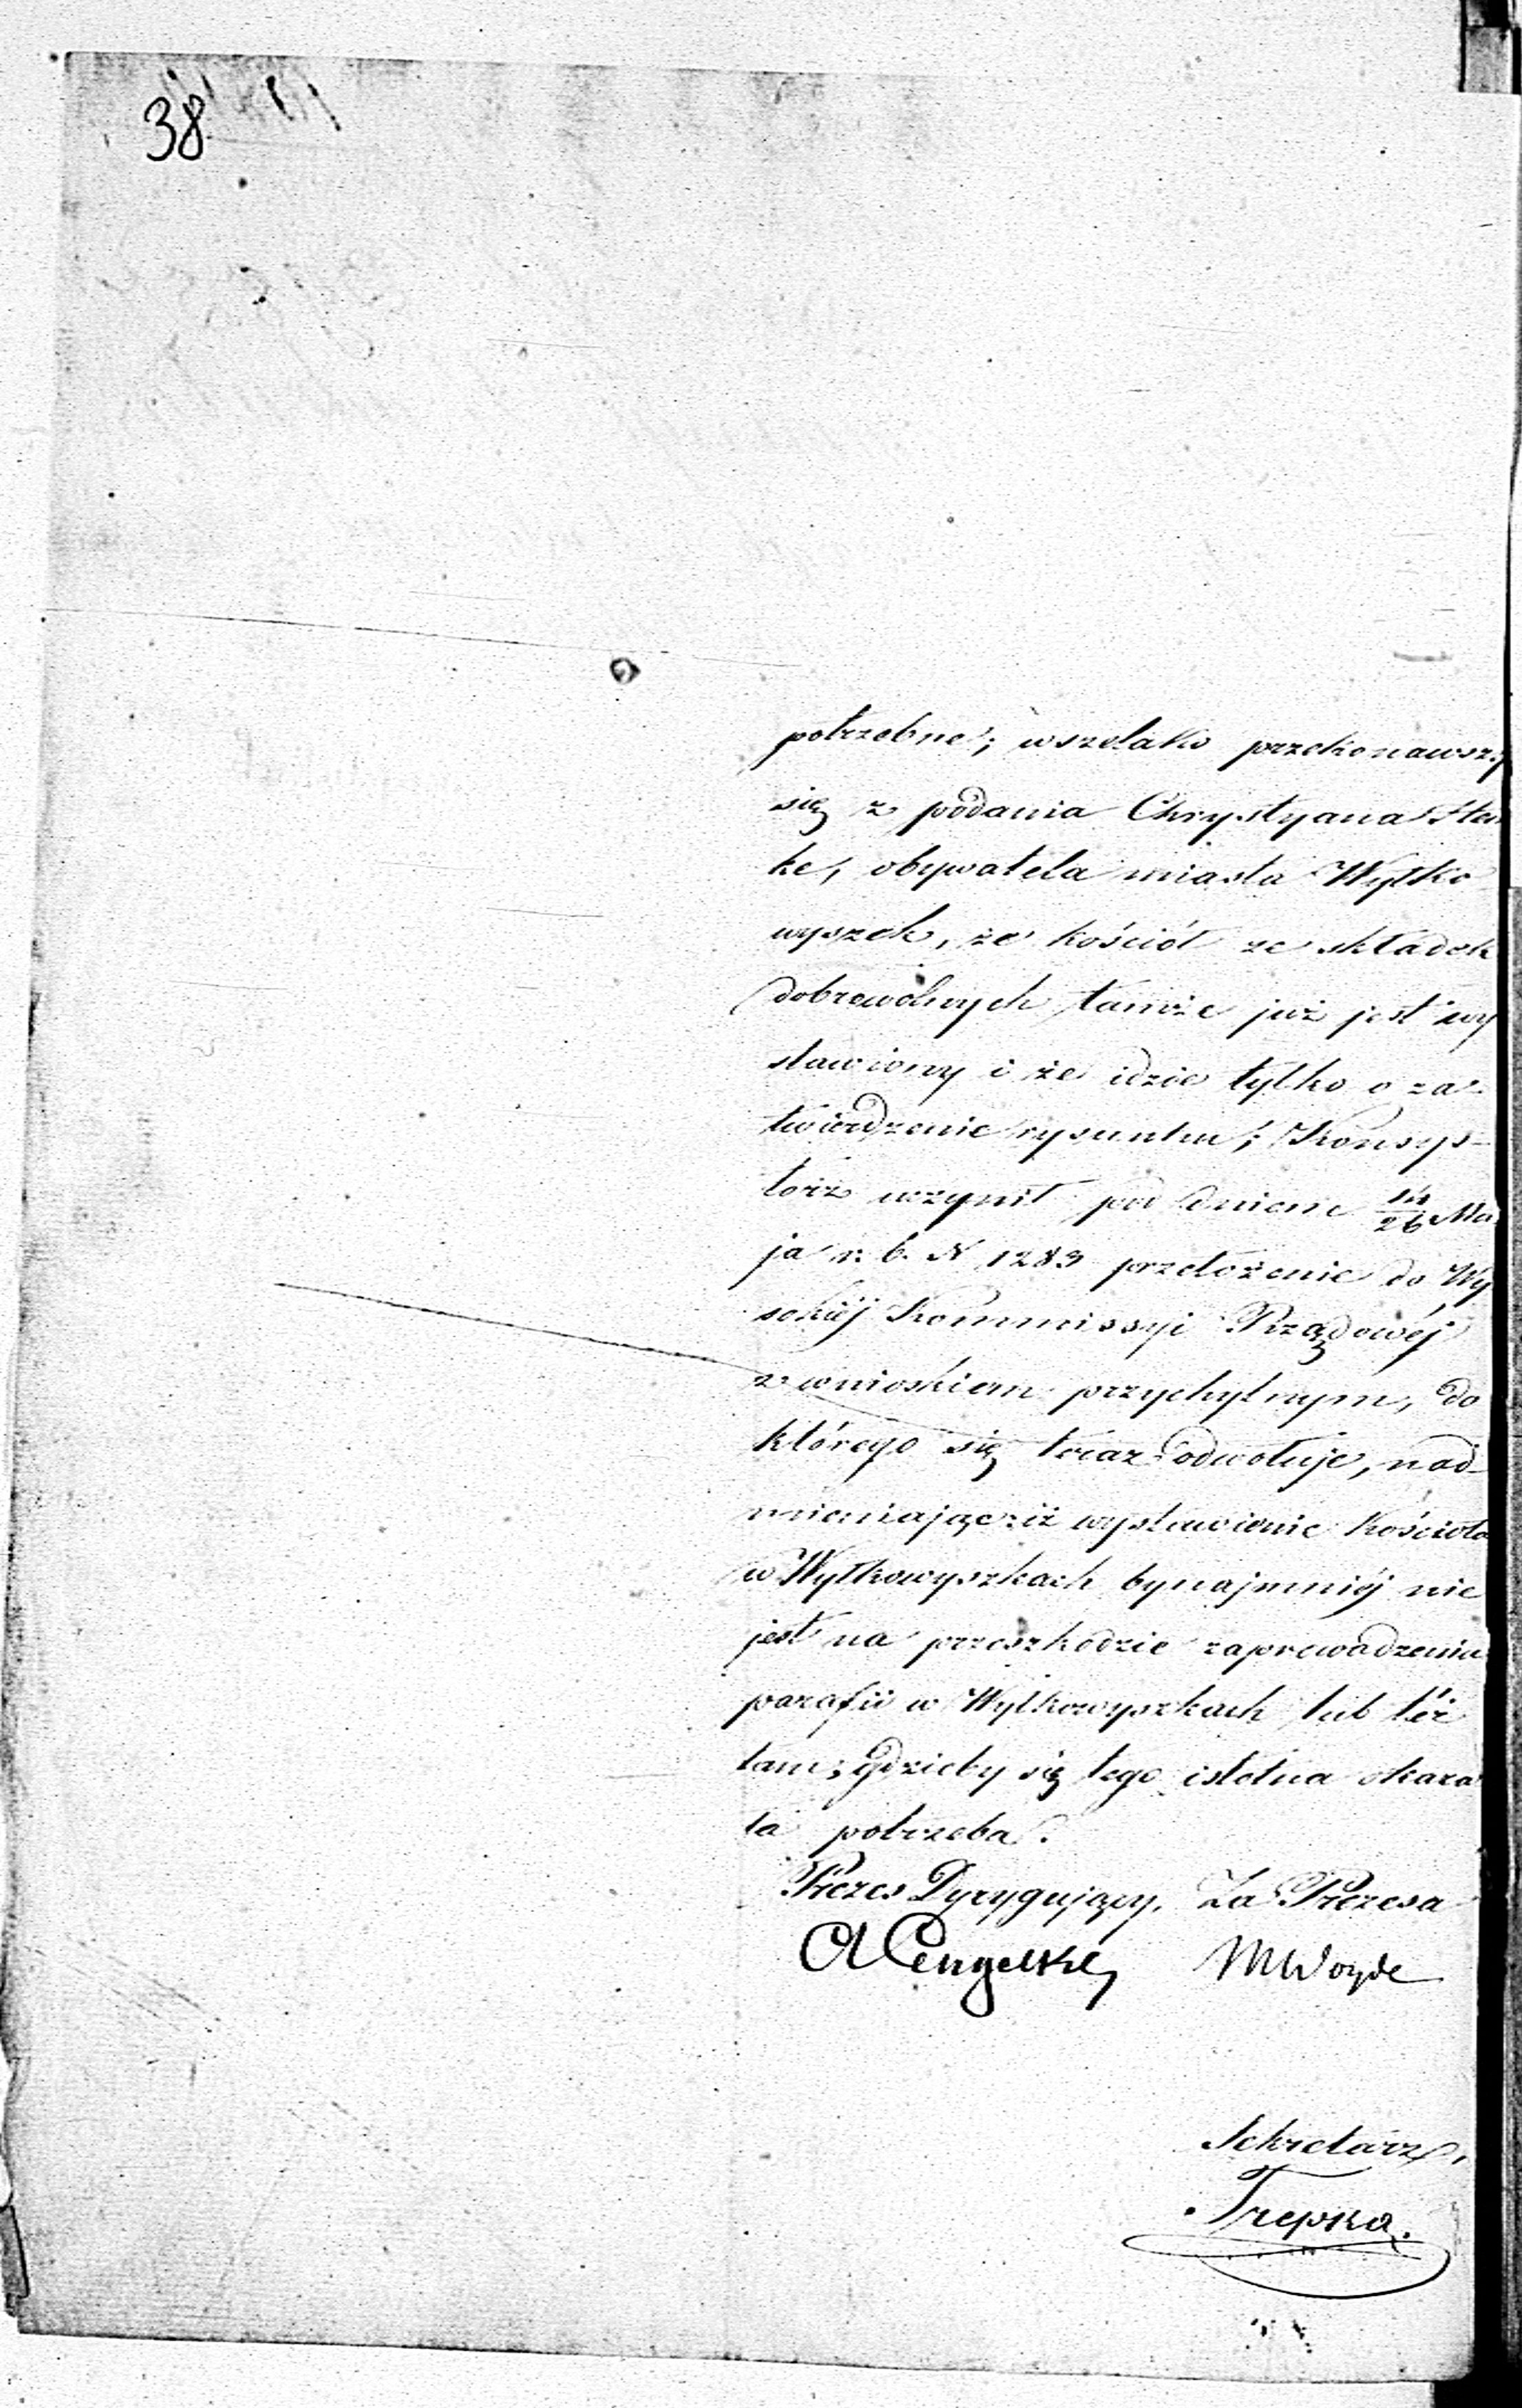 38
potrzebne; wszelako przekonawszy
się z podania Chrystyana
ke, obywatela miasta Wyłko
wyszek, że kościół ze składek
dobrowolnych tamże już jest wy
stawiony i że idzie tylko o za-
twierdzenie rysunku; Konsys-
torz uczynił pod dniem 14/26 Ma
ja r. b. N 1283 przełożenie do Wy
sokiéj Kommissyi Rządowéj
z wnioskiem przychylnym, do
którego się teraz odwołuje, nad-
mieniając iż wystawienie kościoła
w Wyłkowyszkach bynajmniéj nie
jest na przeszkodzie zaprowadzenia
parafii w Wyłkowyszkach lub téż
tam, gdzieby się tego istotna okaza
ła potrzeba.
Prezes Dyrygujący, Za Prezesa
M Woyde
Sekretarz,
Trepka.